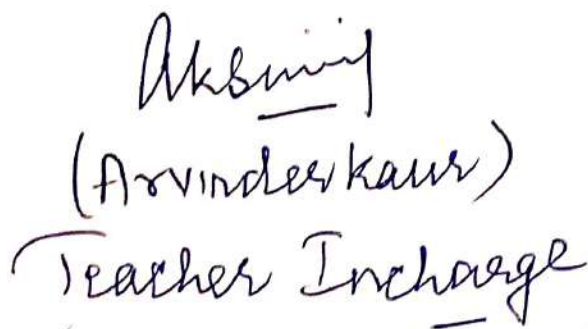 (Arvinder kaur)
Teacher Incharge